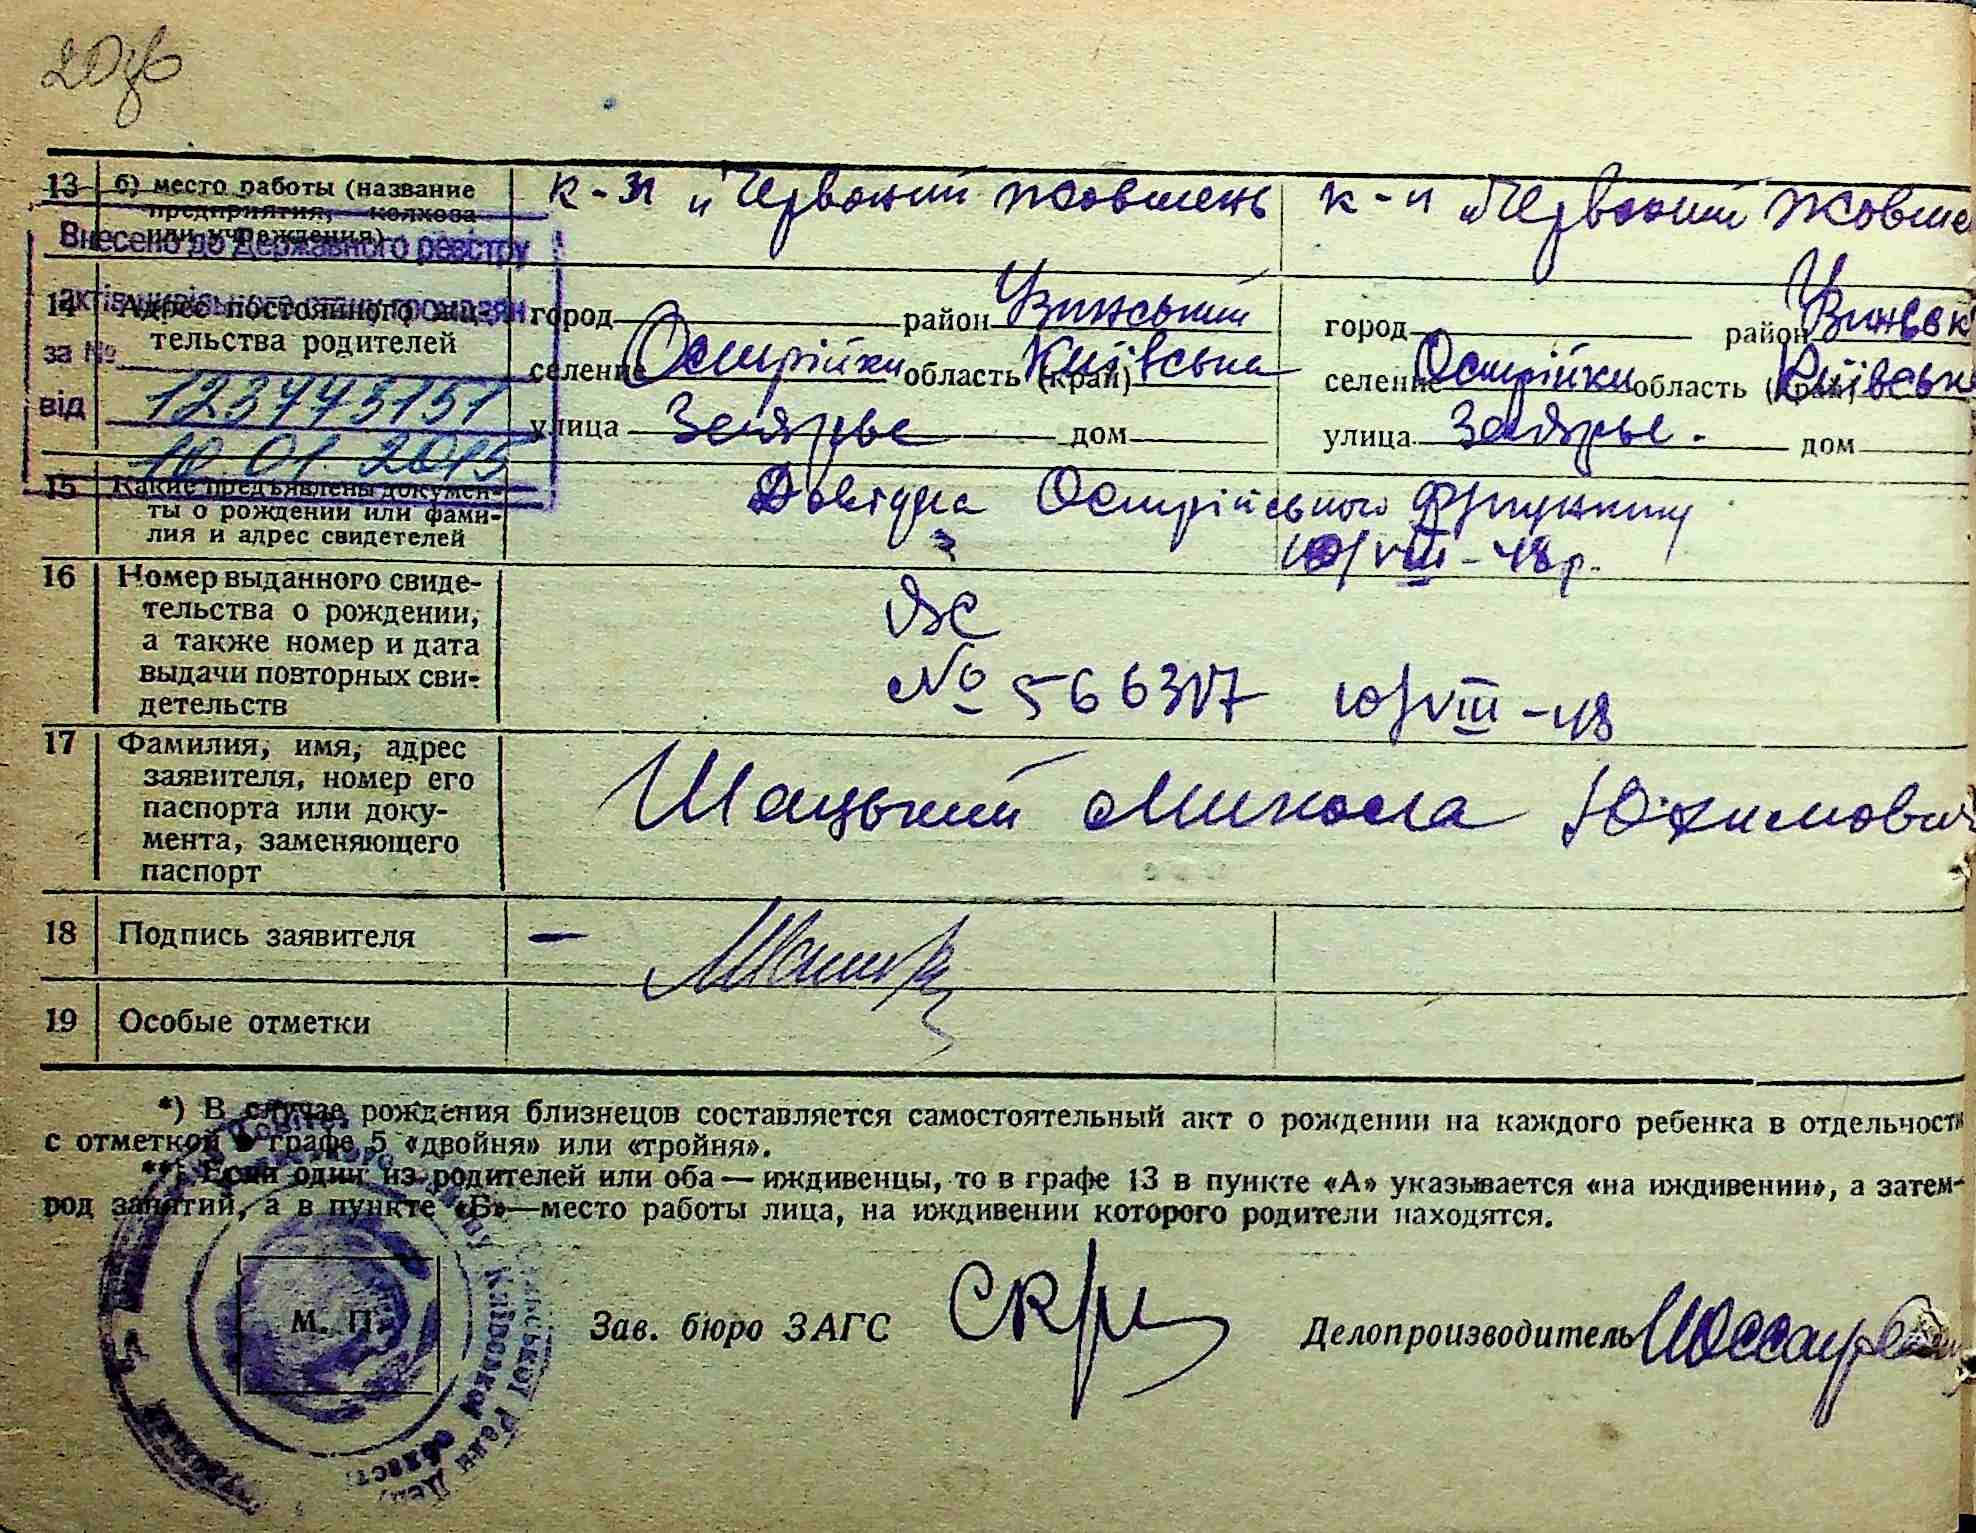 20зв
13 б) место работы (название предприятия, колхоза или учреждения)
к-п "Червоний Жовтень
к-п "Червоний Жовте
Внесено до Державного реєстру
актів цивільного стану громадян
за №
123773151
від
10.01.2015
14 Адрес постоянного жительства родителей
город район Узинський
селение Острійки область (край) Київська
улица Заярье дом
город район Узинськ
селение Острійки область (край) Київськ
улица Заярье. дом
15 Какие предъявлены документы о рождении или фамилия и адрес свидетелей
Довідка Острійського
10/VIII-48р.
16 Номер выданного свидетельства о рождении, а также номер и дата выдачи повторных свидетельств
№ 566317 10/VIII-48
17 Фамилия, имя, адрес заявителя, номер его паспорта или документа, заменяющего паспорт
Шацький Микола Юхимович
18 Подпись заявителя –
19 Особые отметки
*) В случае рождения близнецов составляется самостоятельный акт о рождении на каждого ребенка в отдельности
с отметкой в графе 5 «двойня» или «тройня».
**) Если один из родителей или оба — иждивенцы, то в графе 13 в пункте «А» указывается «на иждивении», а затем-
род занятий, а в пункте «Б»—место работы лица, на иждивении которого родители находятся.
М. П.
Зав. бюро ЗАГС
Делопроизводитель
Київської області